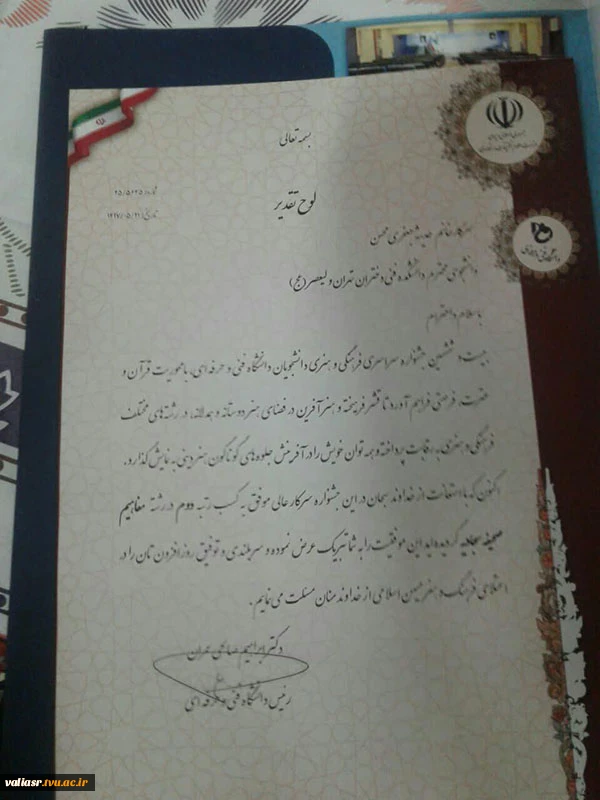 بسمه تعالی
لوح تقدیر
شماره: ۲۵/۵۶۳۵
تاریخ: ۱۳۹۷/۰۵/۲۱
سرکار خانم حدیثه جعفری محسن
دانشجوی محترم دانشکده فنی دختران تهران ولیعصر (عج)
با سلام و احترام
بیست و ششمین جشنواره سراسری فرهنگی و هنری دانشجویان دانشگاه فنی و حرفه ای، با محوریت قرآن و
عترت، فرصتی فراهم آورد تا قشر فرهیخته و هنرآفرین در فضای هنر دوستانه و همدلانه، در رشته های مختلف
فرهنگی و هنری به رقابت پرداخته و همه توان خویش را در آفرینش جلوه های گوناگون هنر دینی به نمایش گذارد.
اکنون که با استعانت از خداوند سبحان در این جشنواره سرکار عالی موفق به کسب رتبه دوم در رشته مفاهیم
صحیفه سجادیه گردیده اید این موفقیت را به شما تبریک عرض نموده و سربلندی و توفیق روزافزون تان را در
اعتلای فرهنگ و هنر میهن اسلامی از خداوند منان مسئلت می نمایم.
دکتر ابراهیم صالحی عمران
رئیس دانشگاه فنی و حرفه ای
valiasr.tvu.ac.ir